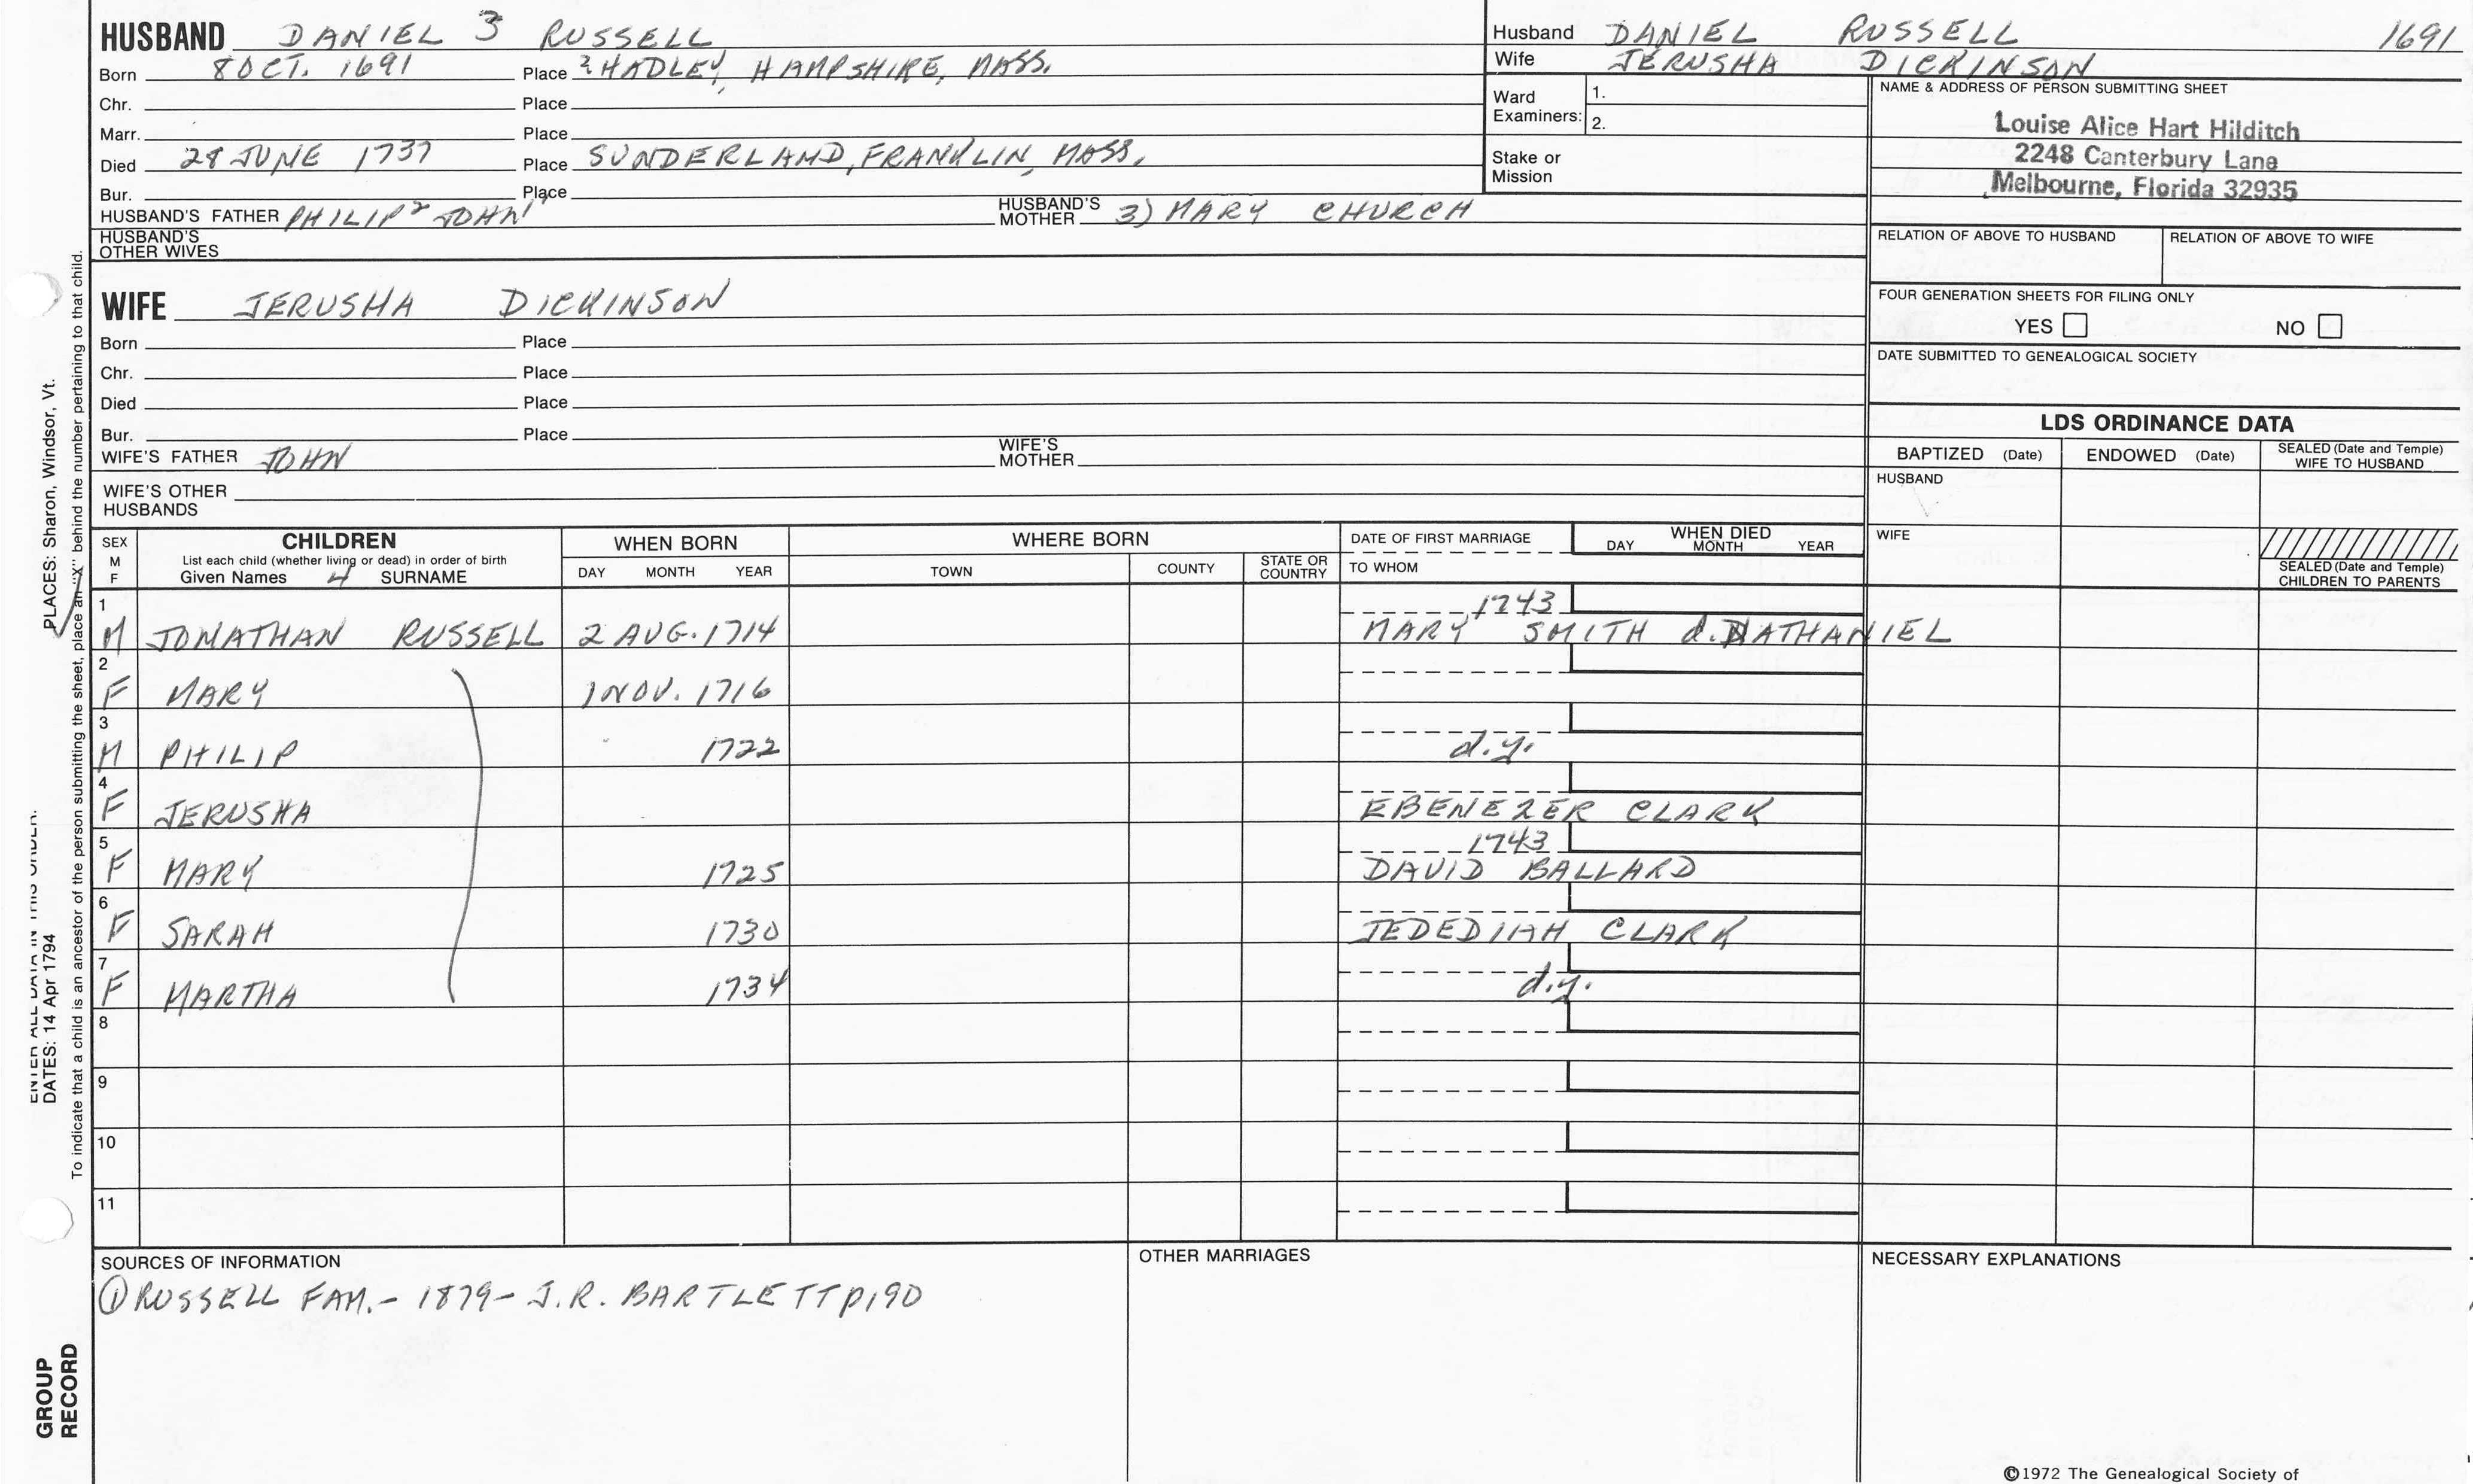 HUSBAND DANIEL 3 RUSSELL
Born 8 OCT. 1691 Place ? HADLEY, HAMPSHIRE, MASS.
Chr. Place
Marr. Place
Died 28 JUNE 1737 Place SUNDERLAND, FRANKLIN, MASS.
Bur. Place
HUSBAND'S FATHER PHILIP² JOHN¹ HUSBAND'S MOTHER 3) MARY CHURCH
HUSBAND'S OTHER WIVES
Husband DANIEL RUSSELL 1691
Wife JERUSHA DICKINSON
Ward Examiners: 1.
2.
Stake or Mission
NAME & ADDRESS OF PERSON SUBMITTING SHEET
Louise Alice Hart Hilditch
2248 Canterbury Lane
Melbourne, Florida 32935
RELATION OF ABOVE TO HUSBAND RELATION OF ABOVE TO WIFE
FOUR GENERATION SHEETS FOR FILING ONLY
YES NO
DATE SUBMITTED TO GENEALOGICAL SOCIETY
WIFE JERUSHA DICKINSON
Born Place
Chr. Place
Died Place
Bur. Place
WIFE'S FATHER JOHN WIFE'S MOTHER
WIFE'S OTHER HUSBANDS
LDS ORDINANCE DATA
BAPTIZED (Date) ENDOWED (Date) SEALED (Date and Temple) WIFE TO HUSBAND
HUSBAND
WIFE
SEALED (Date and Temple) CHILDREN TO PARENTS
SEX M F CHILDREN WHEN BORN WHERE BORN DATE OF FIRST MARRIAGE WHEN DIED
List each child (whether living or dead) in order of birth
Given Names 4 SURNAME DAY MONTH YEAR TOWN COUNTY STATE OR COUNTRY TO WHOM DAY MONTH YEAR
1 1743
M JONATHAN RUSSELL 2 AUG. 1714 MARY SMITH d. NATHANIEL
2
F MARY 1 NOV. 1716
3
M PHILIP 1722 d.y.
4
F JERUSHA EBENEZER CLARK
5 1743
F MARY 1725 DAVID BALLARD
6
F SARAH 1730 JEDEDIAH CLARK
7
F MARTHA 1734 d.y.
8
9
10
11
SOURCES OF INFORMATION OTHER MARRIAGES NECESSARY EXPLANATIONS
① RUSSELL FAM. - 1879 - J.R. BARTLETT p190
©1972 The Genealogical Society of
PLACES: Sharon, Windsor, Vt.
To indicate that a child is an ancestor of the person submitting the sheet, place an "X" behind the number pertaining to that child.
ENTER ALL DATA IN THIS ORDER:
DATES: 14 Apr 1794
GROUP RECORD